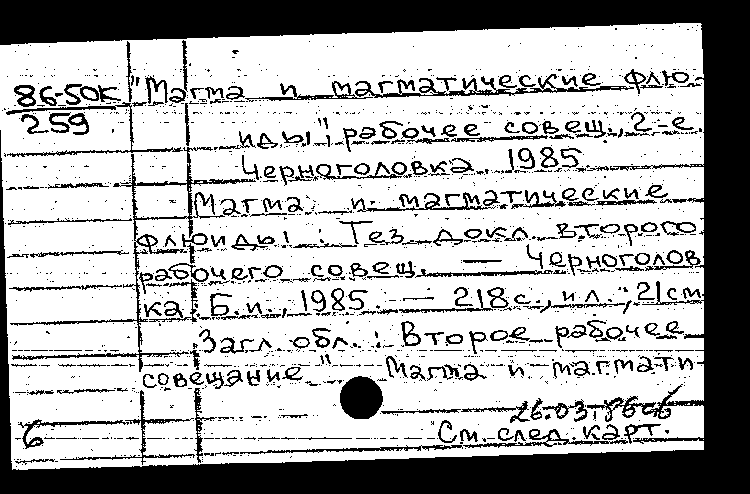 86-50К "Магма и магматические флю-
259
иды", рабочее совещ., 2-е.
Черноголовка. 1985.
Магма и магматические
флюиды : Тез. докл. второго
рабочего совещ. — Черноголов
ка: Б.и., 1985. — 218с., ил.; 21см
Загл. обл.: Второе рабочее
совещание "Магма и магмати-
26.03.86
6
См. след. карт.